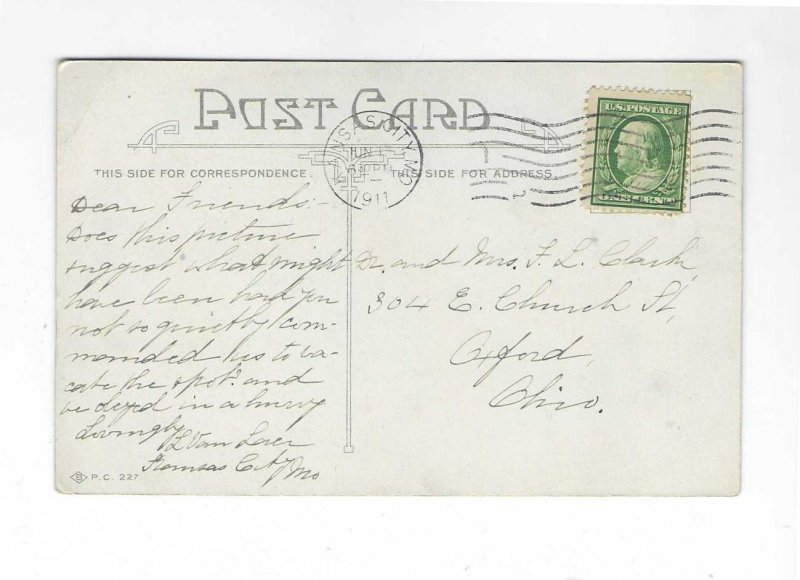 POST CARD
U.S. POSTAGE
ONE CENT
KANSAS CITY, MO.
JUN
630 PM
1911
THIS SIDE FOR CORRESPONDENCE.
THIS SIDE FOR ADDRESS.
Dear Friends:-
Does this picture
suggest what might
have been had you
not so quietly com-
manded us to va-
cate the spot? and
we obey'd in a hurry
Lovingly
Van
Kansas City
Mo
Dr. and Mrs. F. L. Clark,
304 E. Church St,
Oxford,
Ohio.
B P.C. 227